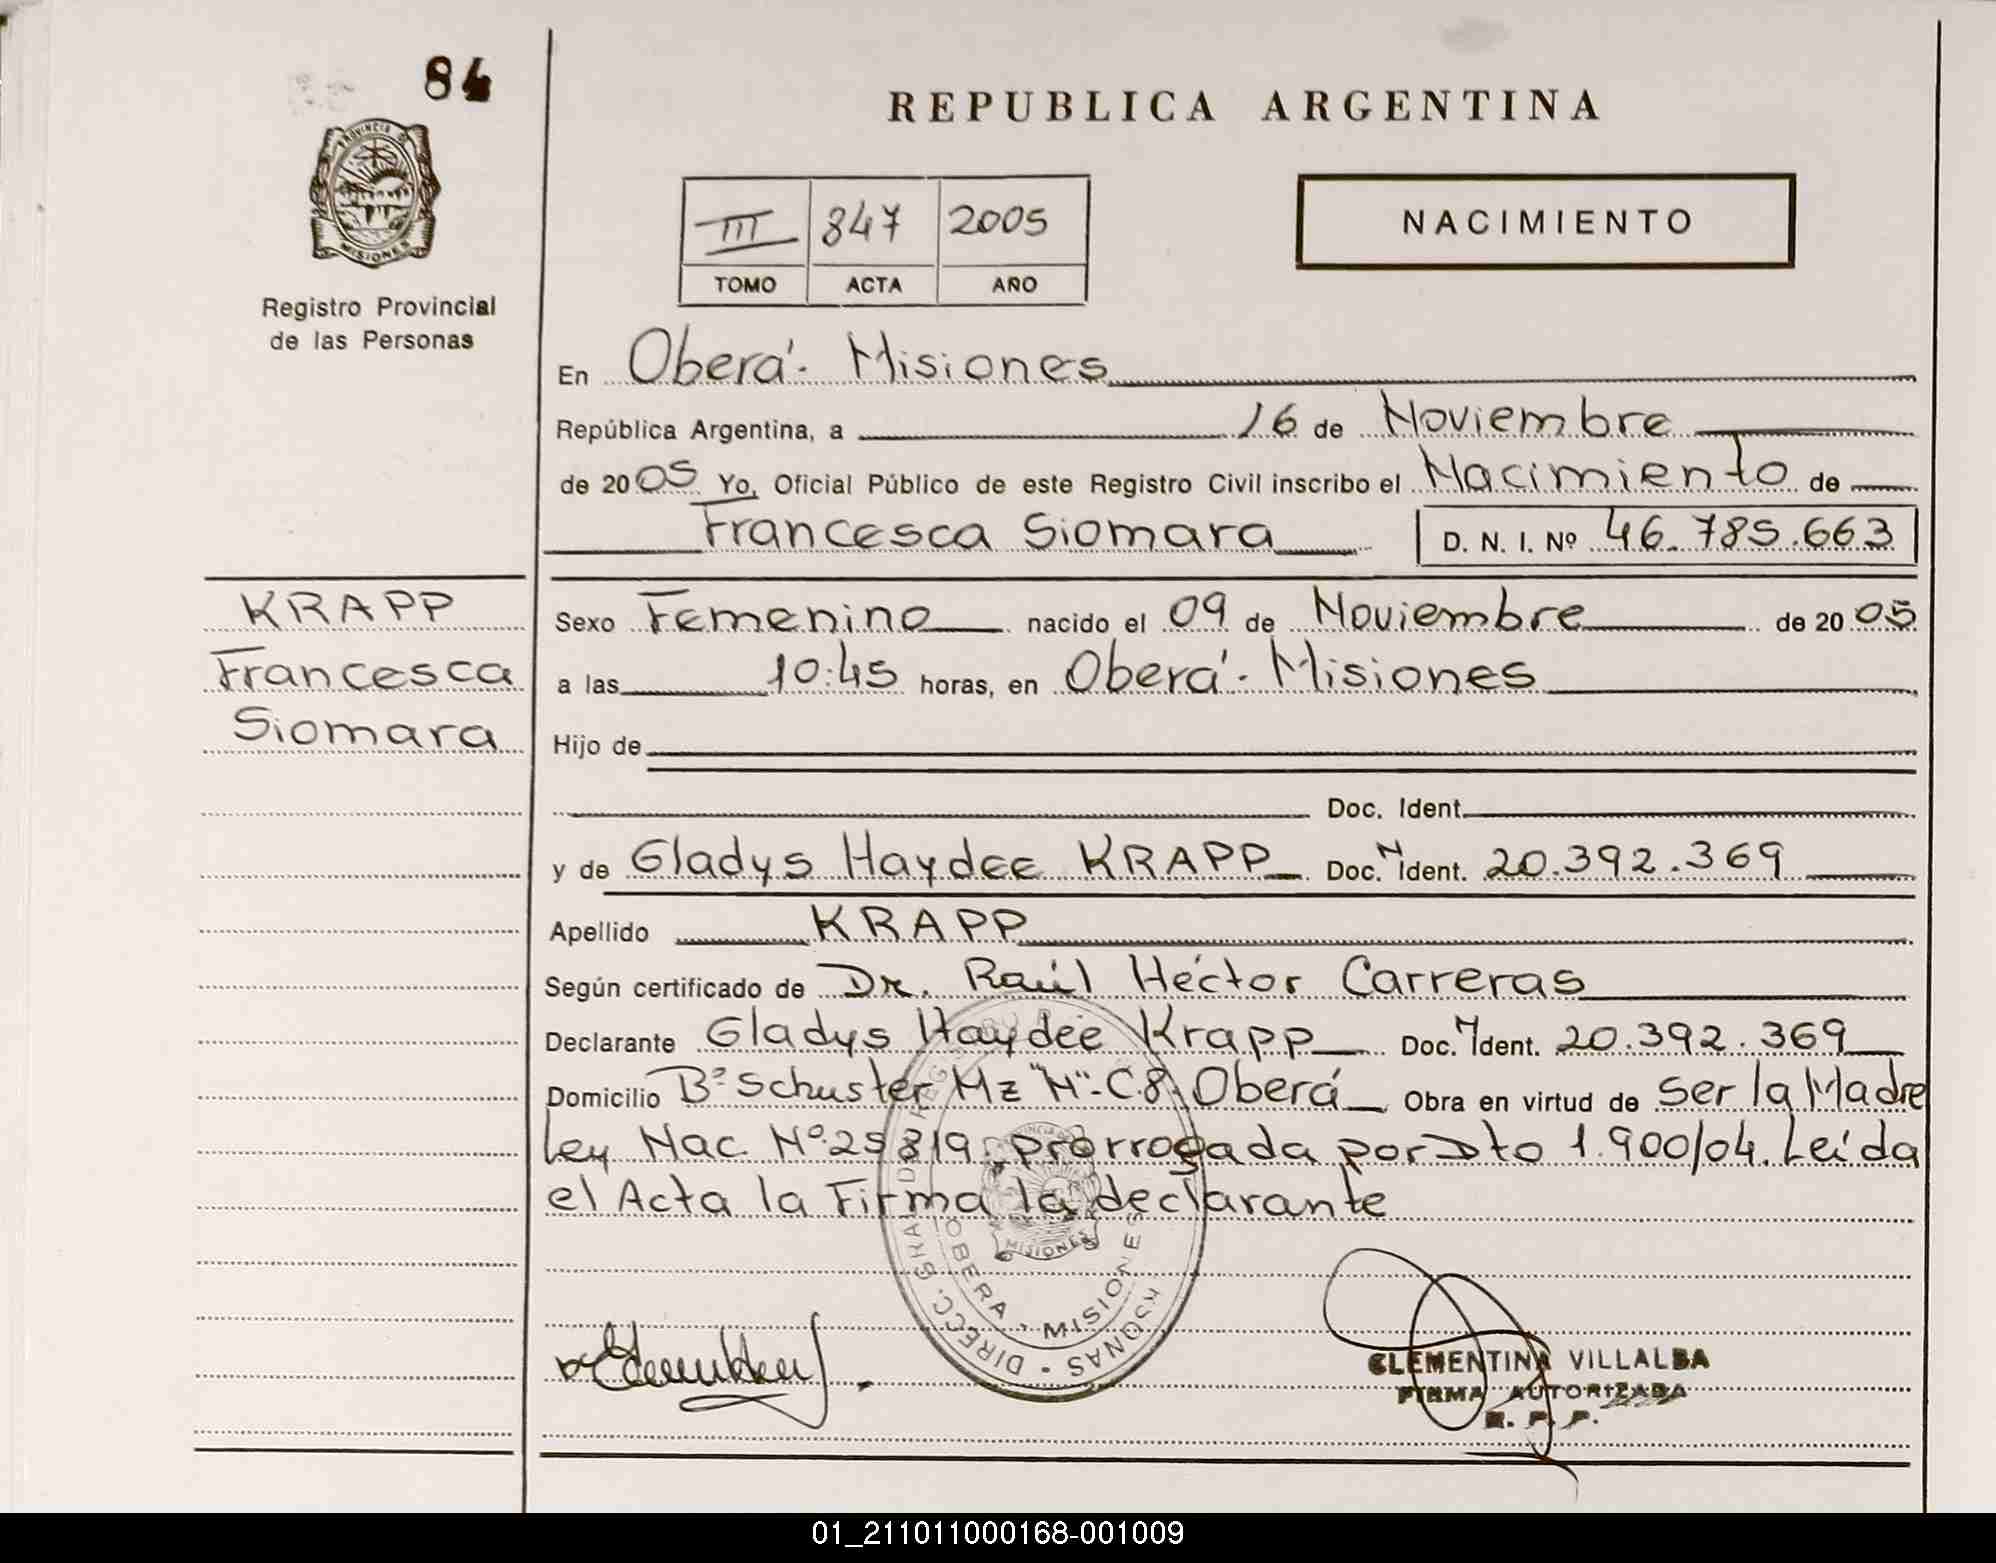 84
REPUBLICA ARGENTINA
PROVINCIA DE
MISIONES
Registro Provincial
de las Personas
III 847 2005
TOMO ACTA AÑO
NACIMIENTO
En Oberá - Misiones
República Argentina, a 16 de Noviembre
de 2005 Yo, Oficial Público de este Registro Civil inscribo el Nacimiento de
Francesca Siomara D. N. I. Nº 46.785.663
KRAPP
Francesca
Siomara
Sexo Femenino nacido el 09 de Noviembre de 2005
a las 10:45 horas, en Oberá - Misiones
Hijo de
Doc. Ident.
y de Gladys Haydee KRAPP Doc. N Ident. 20.392.369
Apellido KRAPP
Según certificado de Dr. Raúl Héctor Carreras
Declarante Gladys Haydee Krapp Doc. N Ident. 20.392.369
Domicilio Bº Schuster Mz "H"-C8 Oberá Obra en virtud de ser la Madre
Ley Nac Nº 25819, prorrogada por Dto 1.900/04. Leída
el Acta la Firma la declarante
OBERA - MISIONES
MISIONES
CLEMENTINA VILLALBA
FIRMA AUTORIZADA
R. P. P.
01_211011000168-001009